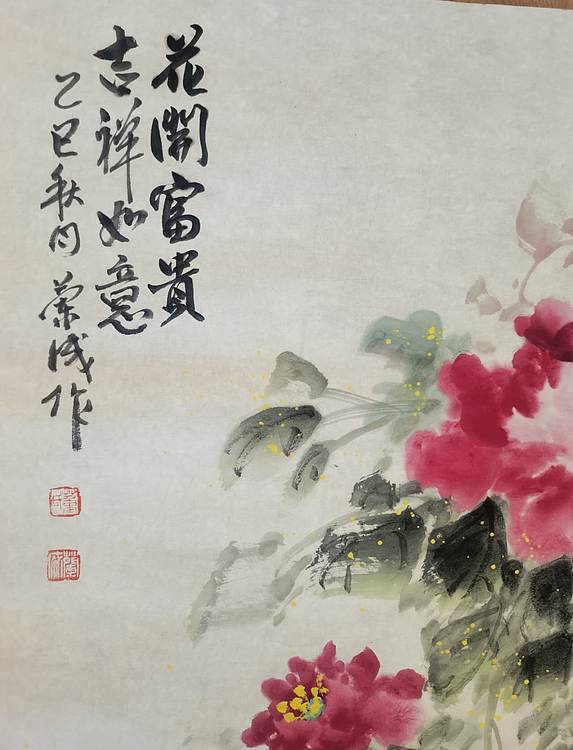 花開富貴
吉祥如意
乙巳秋月 荣成作